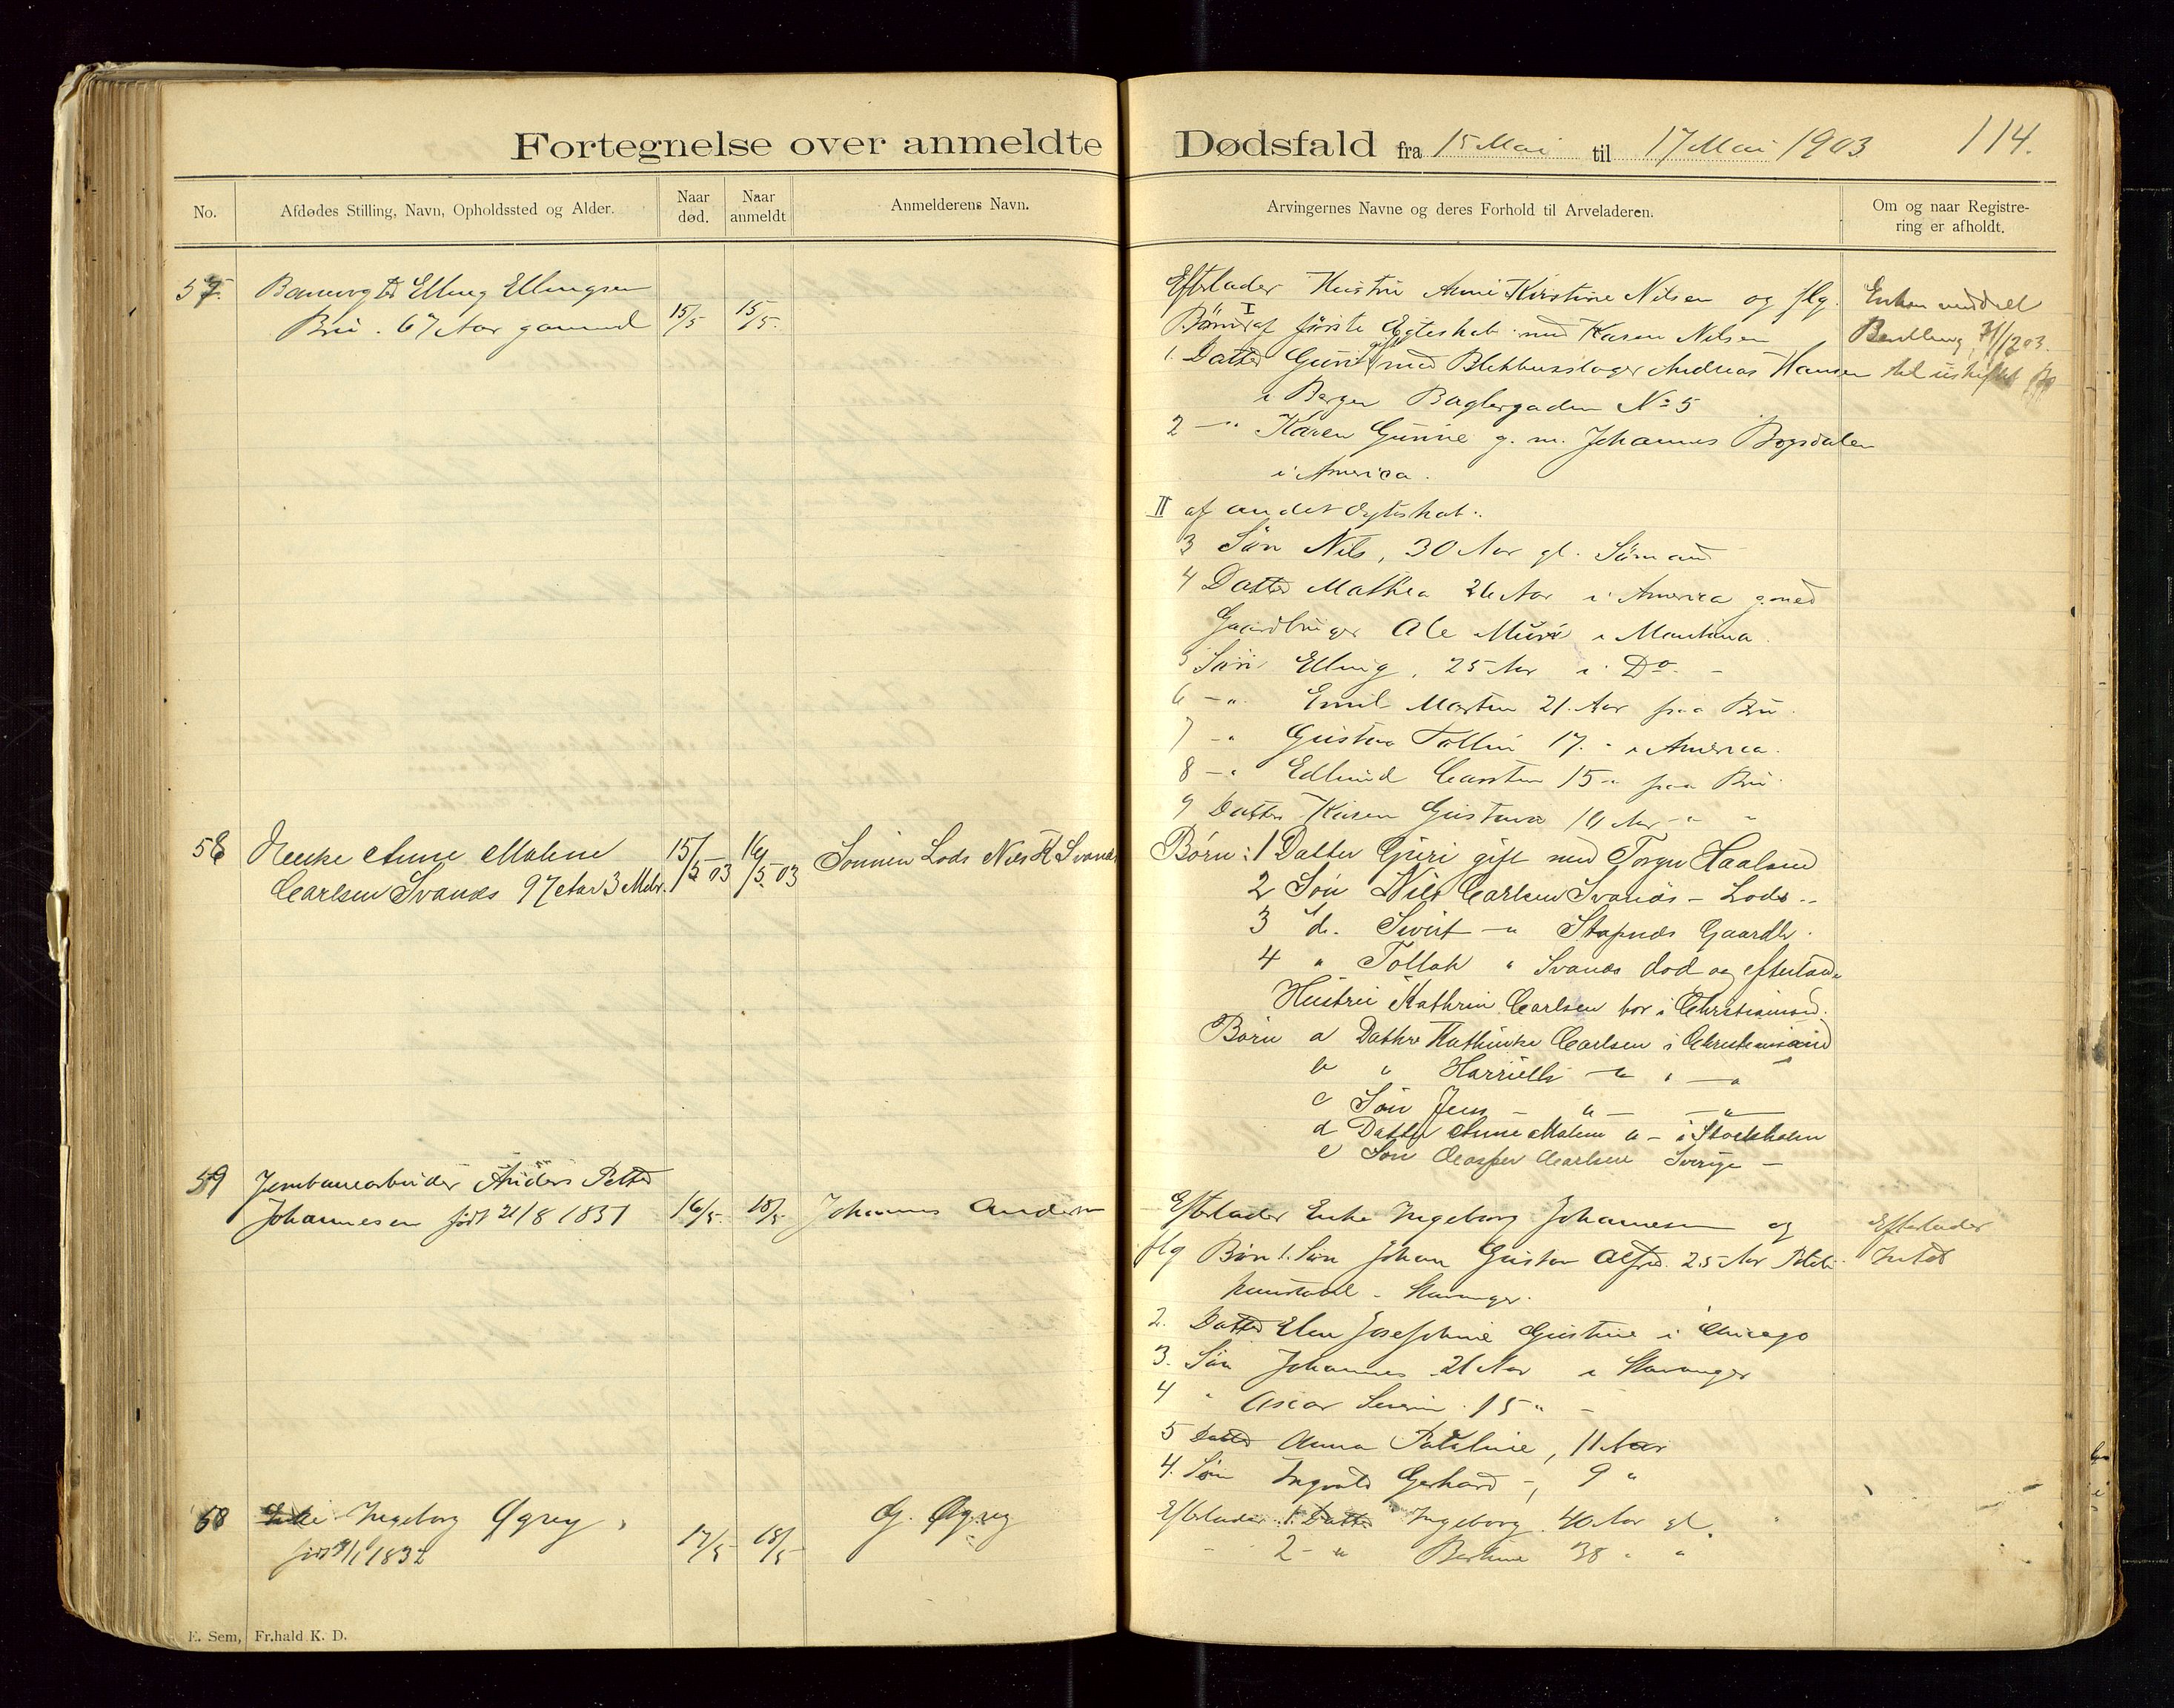 Fortegnelse over anmeldte Dødsfald fra 15 Mai til 17 Mai 1903 114.
No.
Afdødes Stilling, Navn, Opholdssted og Alder.
Naar død.
Naar anmeldt
Anmelderens Navn.
Arvingernes Navne og deres Forhold til Arveladeren.
Om og naar Registrering er afholdt.
57. Elling Ellingsen
Bru. 67 Aar gammel 15/5 15/5.
Efterlader Hustru Anne Kirstine Nilsen og flg.
Børn I af første Egteskab med Karen Nilsen
1. Datter Guri gift med Blikkenslager Andreas Hansen
i Bergen Baglergaden No 5
2 -"- Karen Gurine g. m. Johannes Bogsdalen
i America.
II af andet Egteskab.
3 Søn Nils, 30 Aar gl. Sømand
4 Datter Mathea 26 Aar i America g. med
Gaardbruger Ole i Montana
5 Søn Elling, 25 Aar i Do. -
6 -"- Emil Martin 21. Aar paa Bru.
7 -"- Gustav Tollin 17. " i America.
8 -"- Edlund Carsten 15 " paa Bru
9 Datter Karen Gustava 10 Aar " "
Enken meddelt
Bevilling 31/12 03.
til uskiftet Bo
58 Enke Anne Malene
Carlsen Svanæs 97 Aar 3 Mdr. 15/5 03 16/5. 03 Sønnen Lods Nils K Svanæs
Børn: 1 Datter Guri gift med Torger Haalsund
2 Søn Nils Carlsen Svanæs - Lods
3 do. Sivert -"- Stapnæs Gaardb.
4 " Tollak " Svanæs død og efterlader
Hustru Kathrin Carlsen bor i Christiansand.
Børn a Datter Kathinka Carlsen i Christiansand
b " Harriette -"- " -"-
c Søn Jens - " - - " -
d Datter Anne Malene " - i Stockholm
e Søn Casper Carlsen Sverige -
59 Jernbanearbeider Anders Petter
Johannesen født 21/8 1837 16/5. 18/5 Johannes Andersen
Efterlader Enke Ingeborg Johannesen og
flg Børn 1. Søn Johan Gustav Alfred 25 Aar
- Stavanger.
2. Datter Elen Josephine Gustine i Chicago
3. Søn Johannes 21 Aar i Stavanger
4 " Oscar Severin 15 " -
5 Datter Anna Petrline, 11 Aar
4. Søn Ingvald Gerhard -, 9 "
Efterlader
Intet
60 Enke Ingeborg Øgrey
født 9/1 1832 17/5 18/5 G. Øgrey
Efterlader 1. Datter Ingeborg 40 Aar gl.
2 - " Bertine 38 " "
E. Sem, Fr.hald K. D.